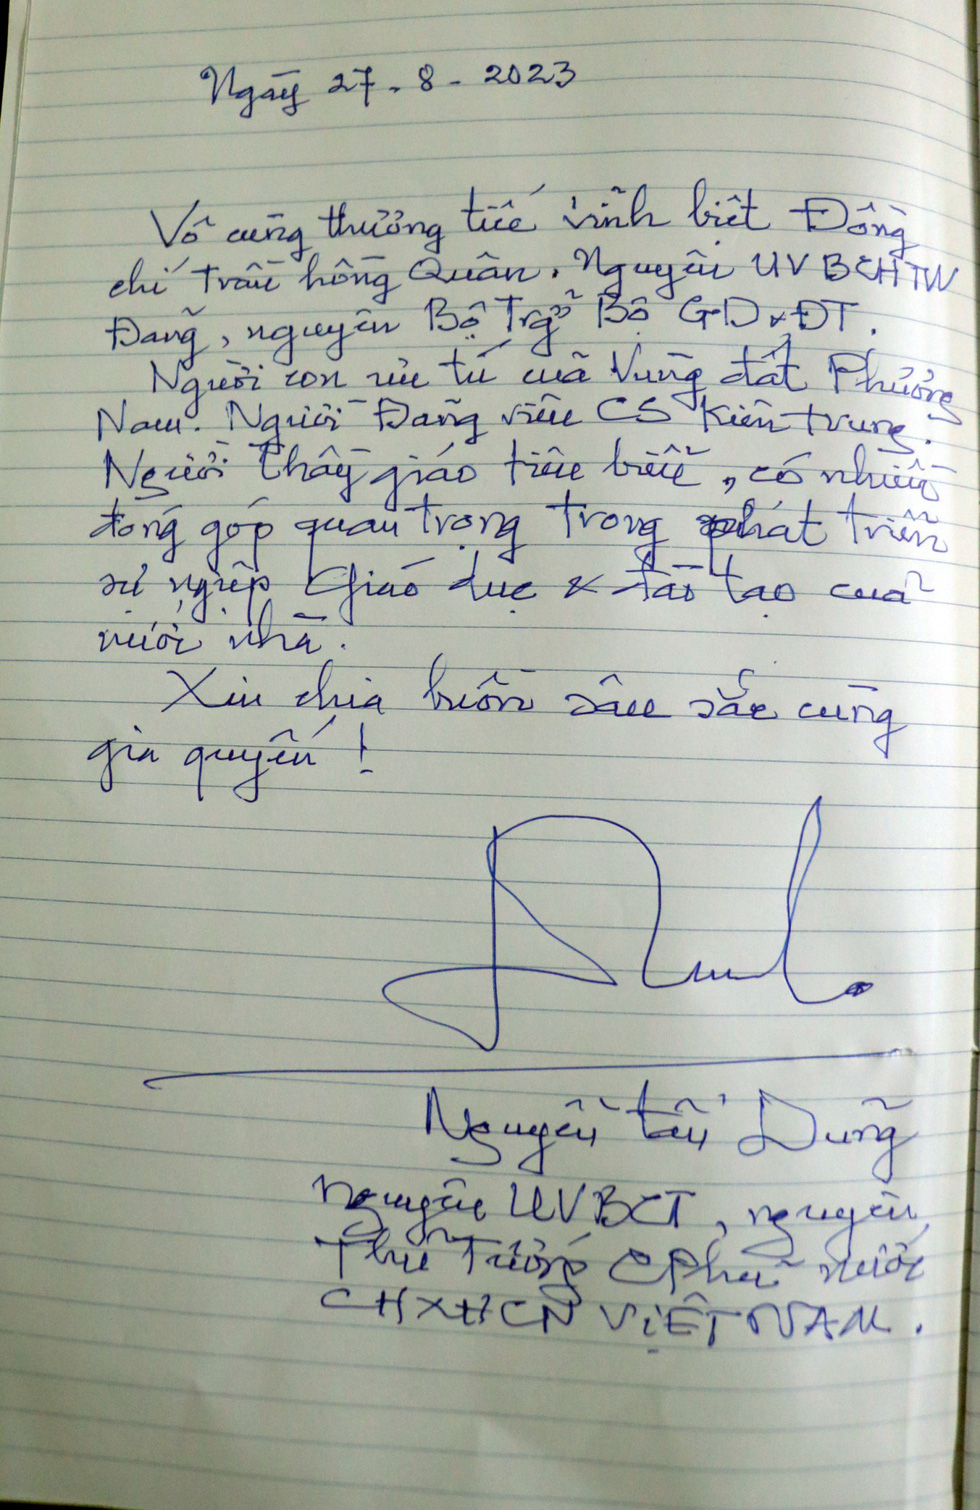 Ngày 27-8-2023
Vô cùng thương tiếc vĩnh biệt Đồng
chí Trần hồng Quân. Nguyên UVBCHTW
Đảng, nguyên Bộ Trg Bộ GD&ĐT.
Người con ưu tú của Vùng đất Phương
Nam. Người Đảng viên CS Kiên trung.
Người thầy giáo tiêu biểu, có nhiều
đóng góp quan trọng trong phát triển
sự nghiệp Giáo dục & đào tạo của
nước nhà.
Xin chia buồn sâu sắc cùng
gia quyến!
Nguyễn tấn Dũng
Nguyên UVBCT, nguyên
Thủ Tướng CPhủ nước
CHXHCN VIỆT NAM.